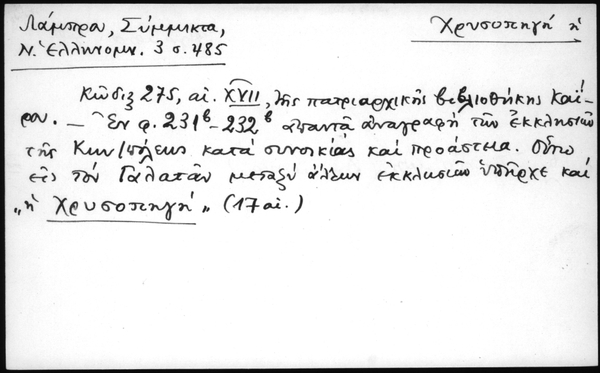 Λάμπρου, Σύμμικτα,
Χρυσοπηγή ἡ
Ν. Ἑλληνομν. 3 σ. 485
Κῶδιξ 275, αἰ. XVII, τῆς πατριαρχικῆς βιβλιοθήκης Καΐ-
ρου. — Ἐν φ. 231β-232β ἀπαντᾷ ἀναγραφὴ τῶν ἐκκλησιῶν
τῆς Κων/πόλεως κατὰ συνοικίας καὶ προάστεια. Οὕτω
εἰς τὸν Γαλατᾶν μεταξὺ ἄλλων ἐκκλησιῶν ὑπῆρχε καὶ
„ἡ Χρυσοπηγή„ (17 αἰ.)